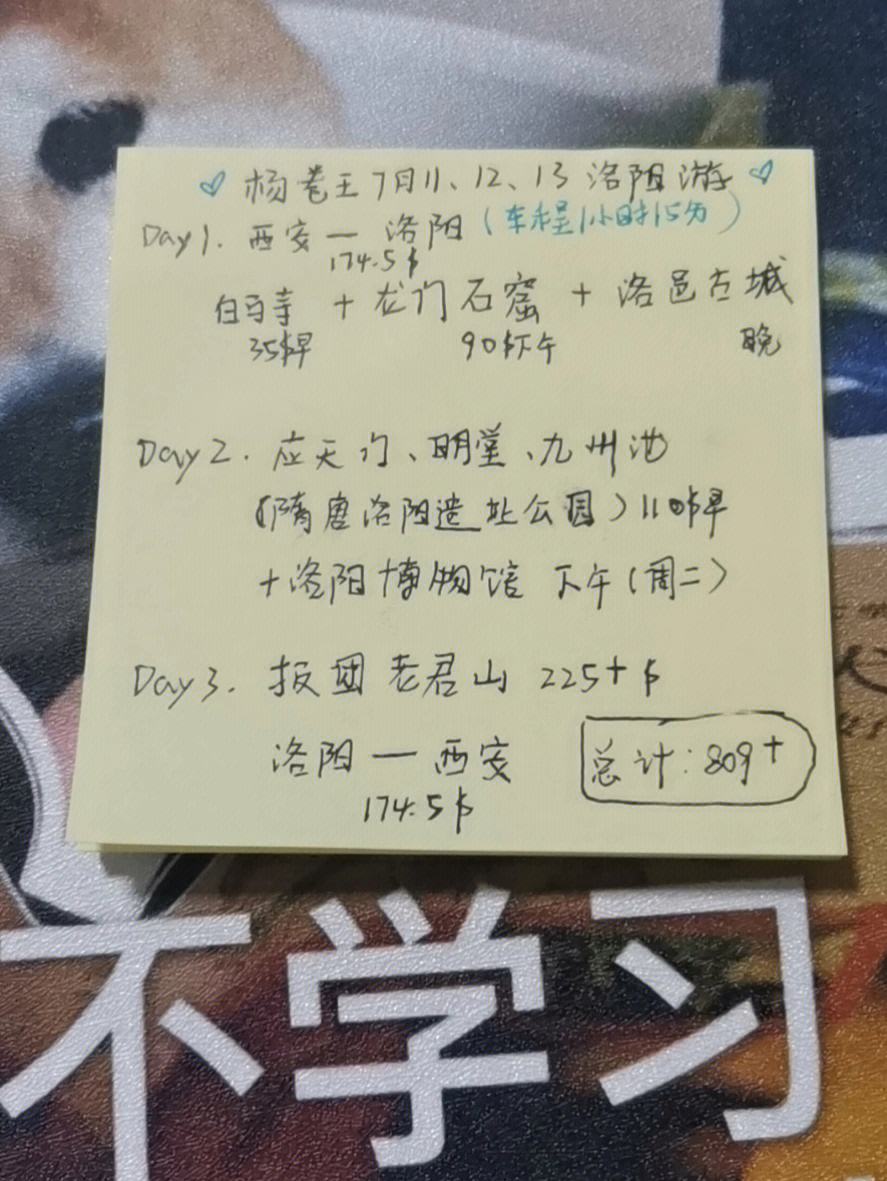 杨卷王7月11、12、13洛阳游
Day1. 西安一洛阳(车程1小时15分)
174.5$
白马寺 + 龙门石窟 + 洛邑古城
35$早 90$下午 晚
Day2. 应天门、明堂、九州池
(隋唐洛阳遗址公园)110$早
+洛阳博物馆 下午(周二)
Day3. 报团老君山 225+$
洛阳一西安
总计:809+
174.5$
不学习